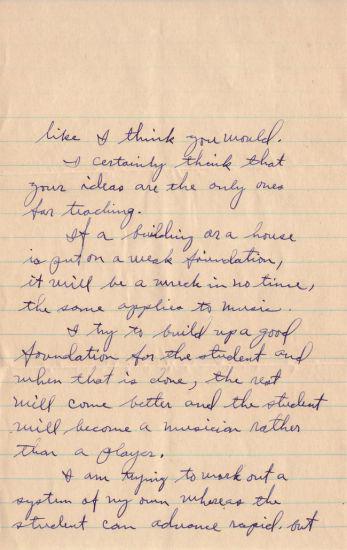 like I think you would.
I certainly think that
your ideas are the only ones
for teaching.
If a building or a house
is put on a weak foundation,
it will be a wreck in no time,
the same applies to music.
I try to build up a good
foundation for the student and
when that is done, the rest
will come better and the student
will become a musician rather
than a player.
I am trying to work out a
system of my own whereas the
student can advance rapid but